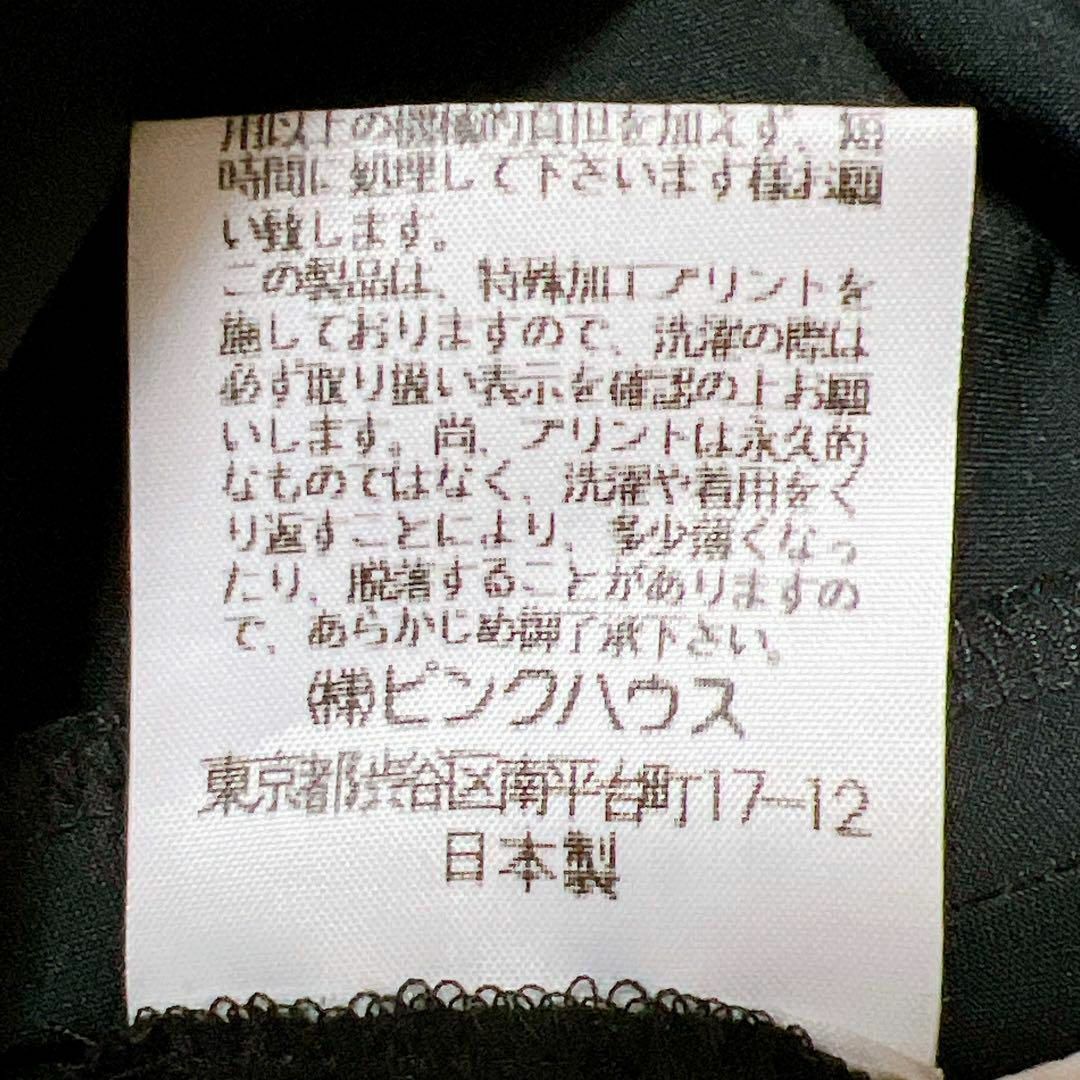 用以上の機械的負担を加えず、短
時間に処理して下さいます様お願
い致します。
この製品は、特殊加工プリントを
施しておりますので、洗濯の際は
必ず取り扱い表示を確認の上お願
いします。尚、プリントは永久的
なものではなく、洗濯や着用をく
り返すことにより、多少薄くなっ
たり、脱落することがありますの
で、あらかじめ御了承下さい。
㈱ピンクハウス
東京都渋谷区南平台町17-12
日本製